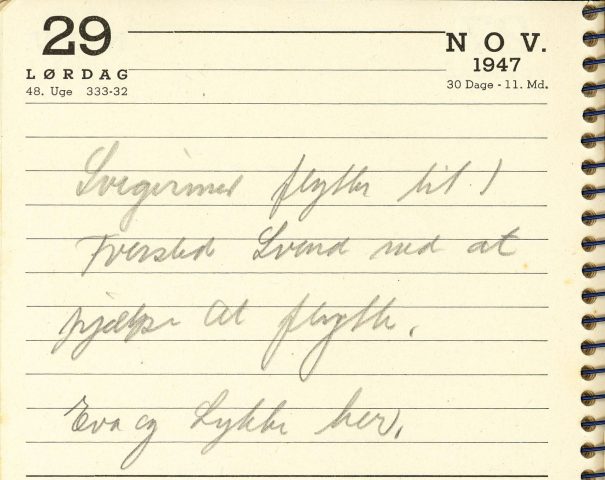 29
LØRDAG
48. Uge 333-32
NOV.
1947
30 Dage - 11. Md.
Svigermor flytter til
Tversted Svend ned at
hjælpe at flytte.
Eva og Lykke her.